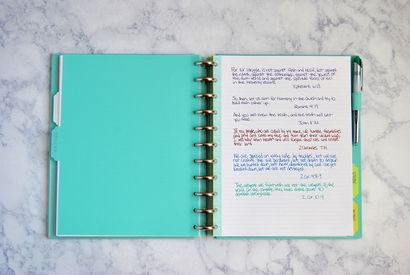 For our struggle is not against flesh and blood, but against
the rulers, against the authorities, against the powers of
this dark world and against the spiritual forces of evil
in the heavenly realms.
Ephesians 6:12
So then, let us aim for harmony in the church and try to
build each other up.
Romans 14:19
And you will know the truth, and the truth will set
you free.
John 8:32
If my people, who are called by my name, will humble themselves
and pray and seek my face and turn from their wicked ways,
I will hear from heaven and will forgive their sins and
their land.
2 Chronicles 7:14
We are pressed on every side by troubles, but we are not
crushed. We are perplexed, but not driven to despair.
We are hunted down, but never abandoned by God. We get
knocked down, but we are not destroyed.
2 Cor. 4:8-9
The weapons we fight with are not the weapons of the
world. On the contrary, they have divine power to
demolish strongholds.
2 Cor. 10:4